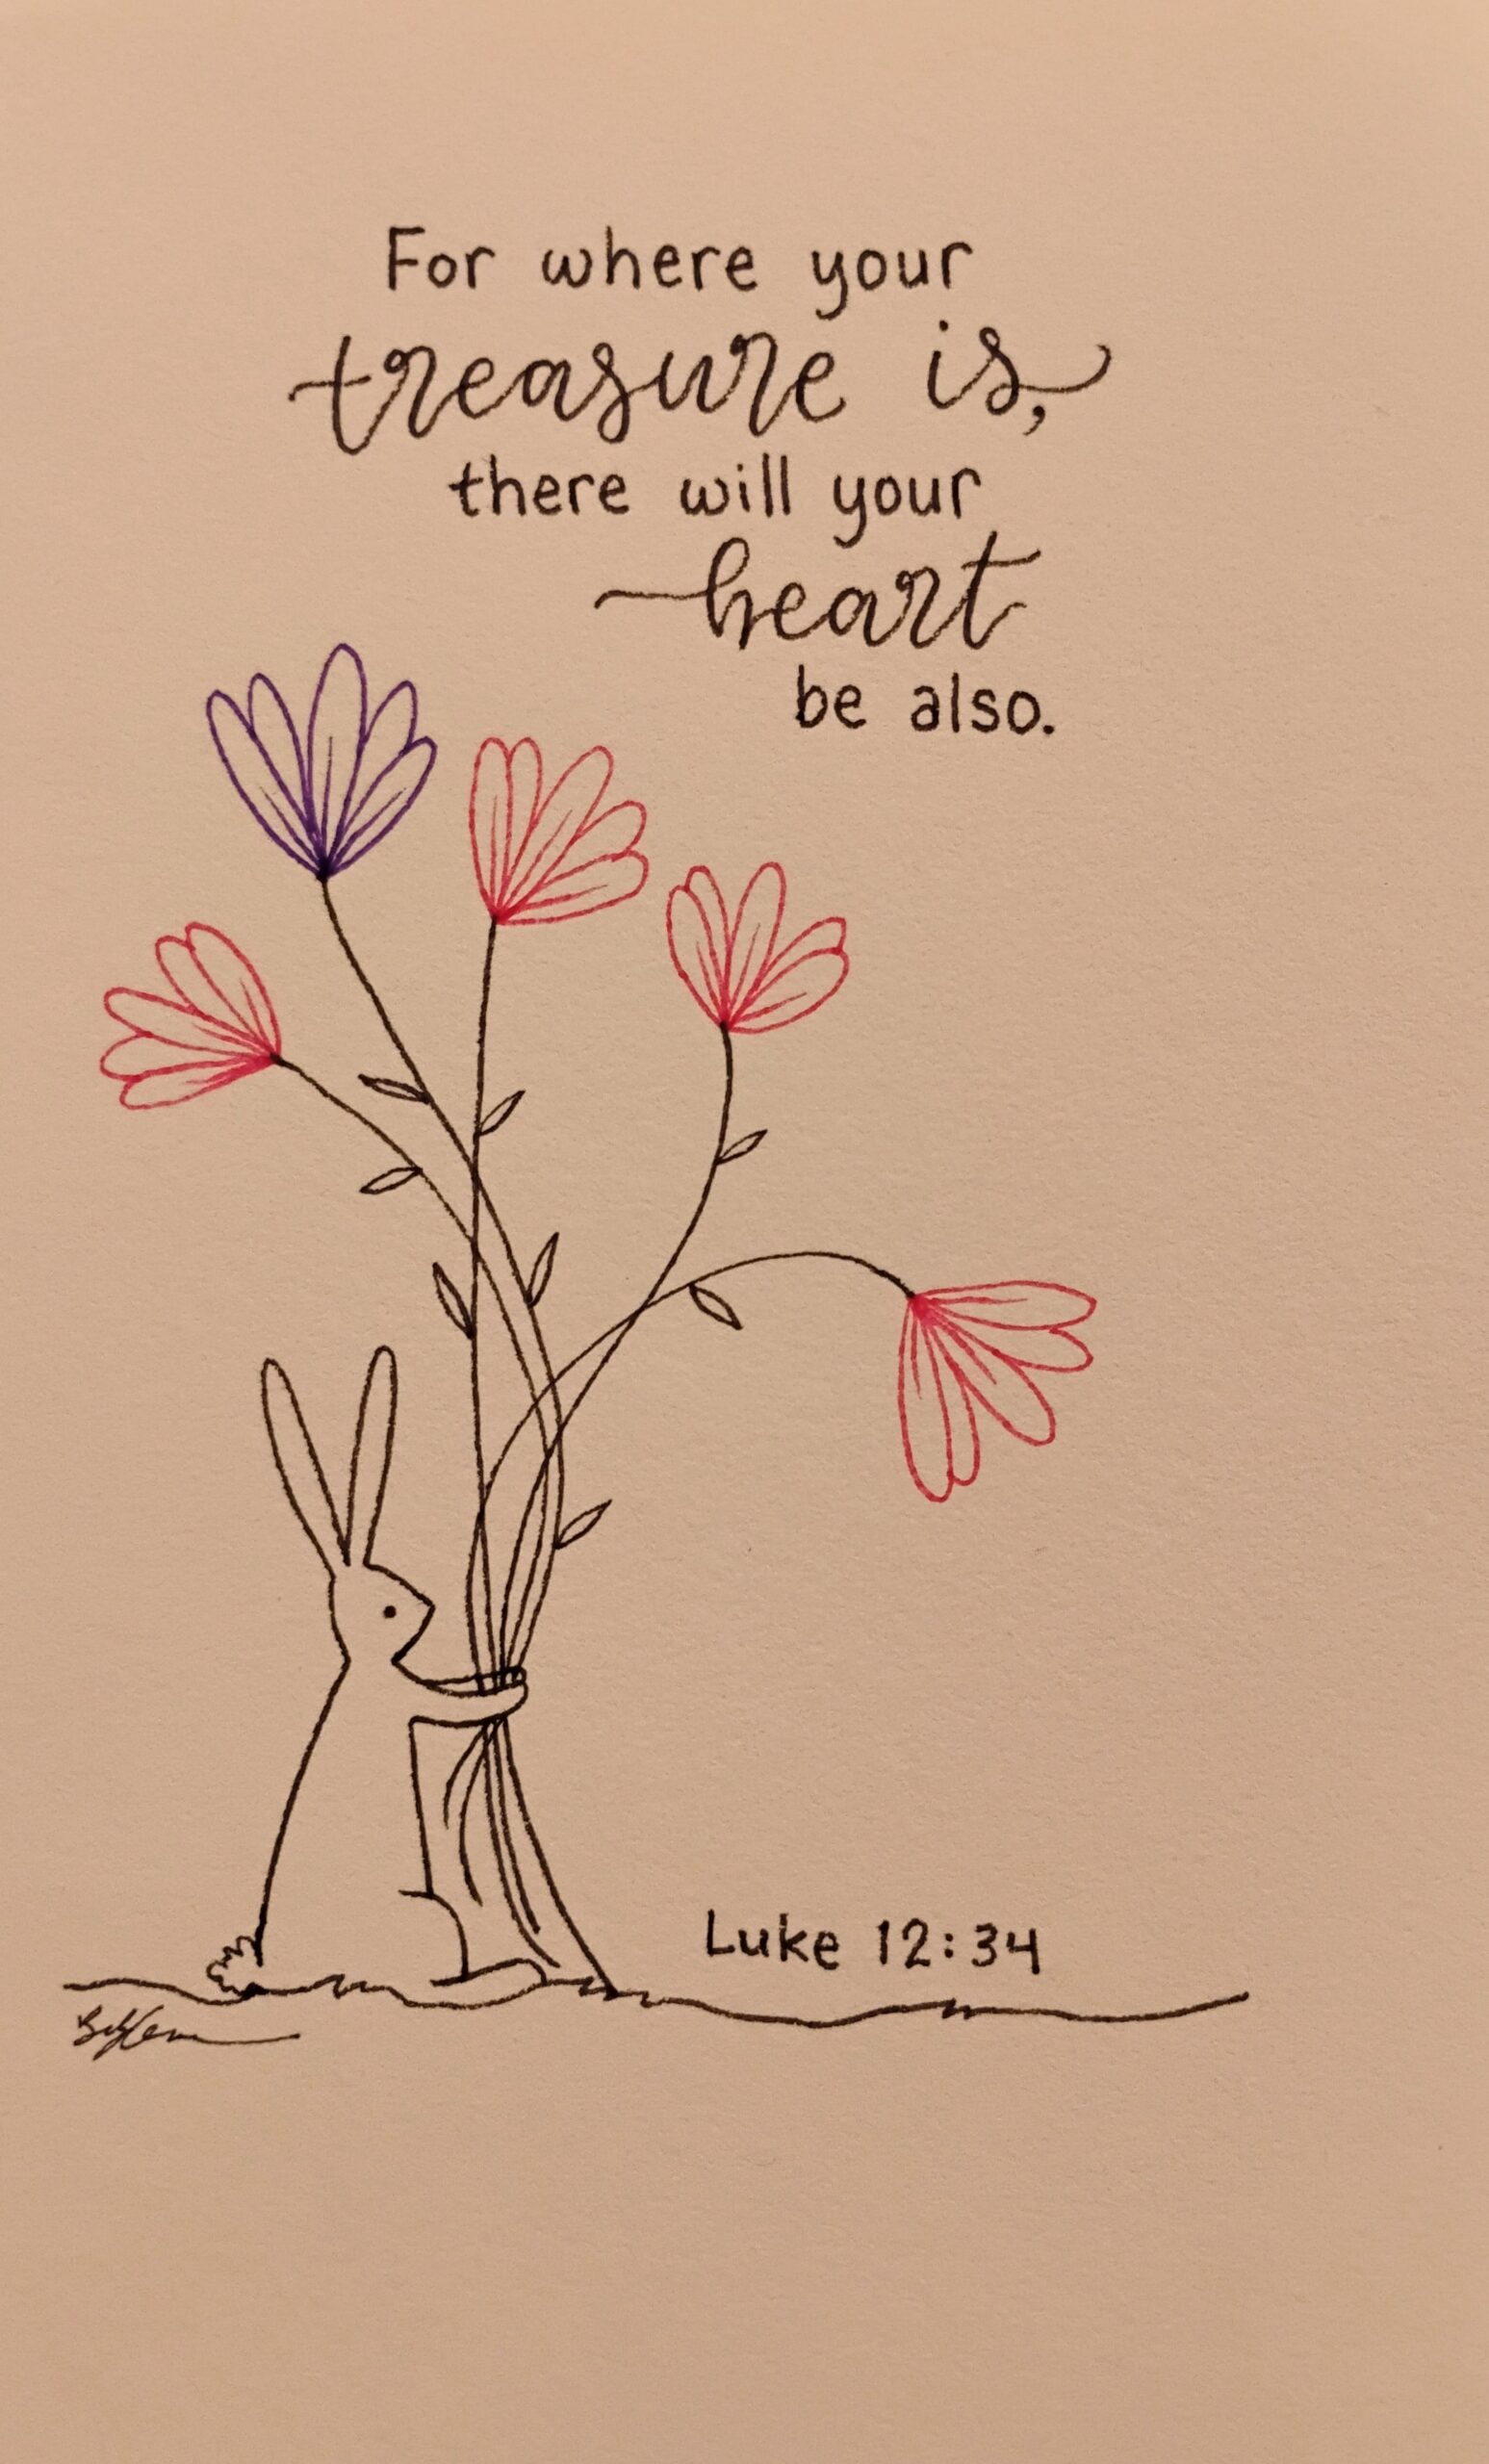 For where your
treasure is,
there will your
heart
be also.
Luke 12:34